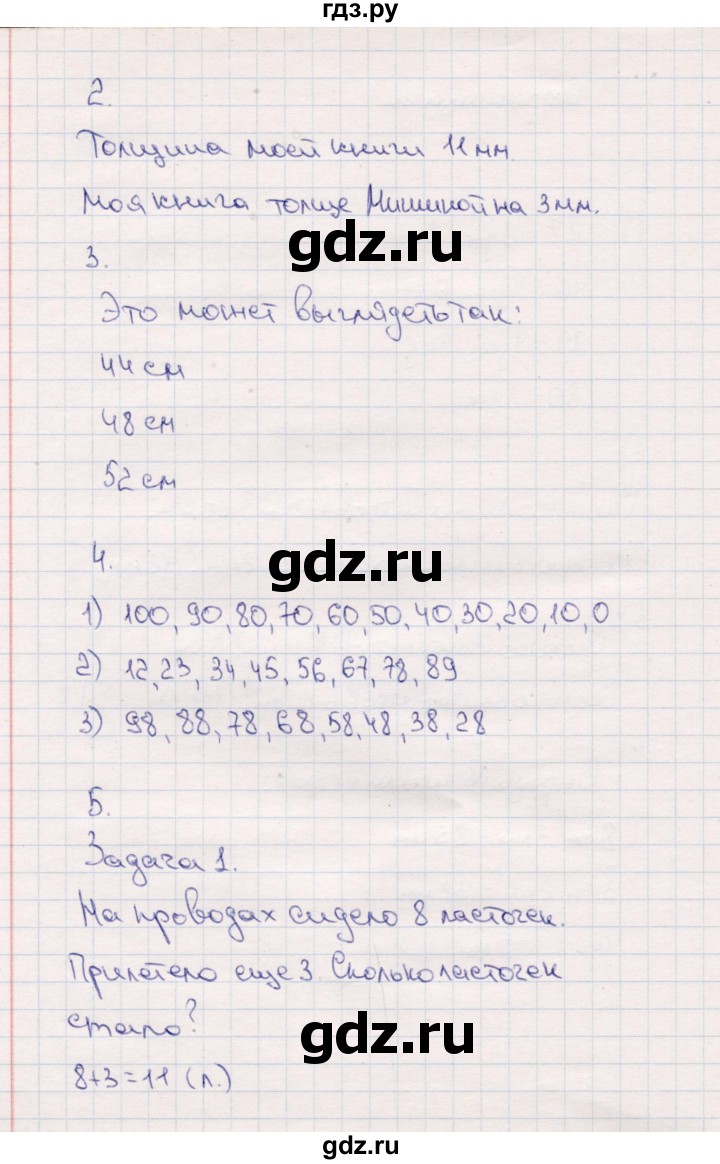 гдз.ру
2.
Толщина моей книги 11 мм.
Моя книга толще Мишиной на 3 мм.
gdz.ru
3.
Это может выглядеть так:
44 см
48 см
52 см
gdz.ru
4.
1) 100, 90, 80, 70, 60, 50, 40, 30, 20, 10, 0
2) 12, 23, 34, 45, 56, 67, 78, 89
3) 98, 88, 78, 68, 58, 48, 38, 28
5.
Задача 1.
На проводах сидело 8 ласточек.
Прилетело еще 3. Сколько ласточек
стало?
gdz.ru
8+3=11 (л.)
gdz.ru